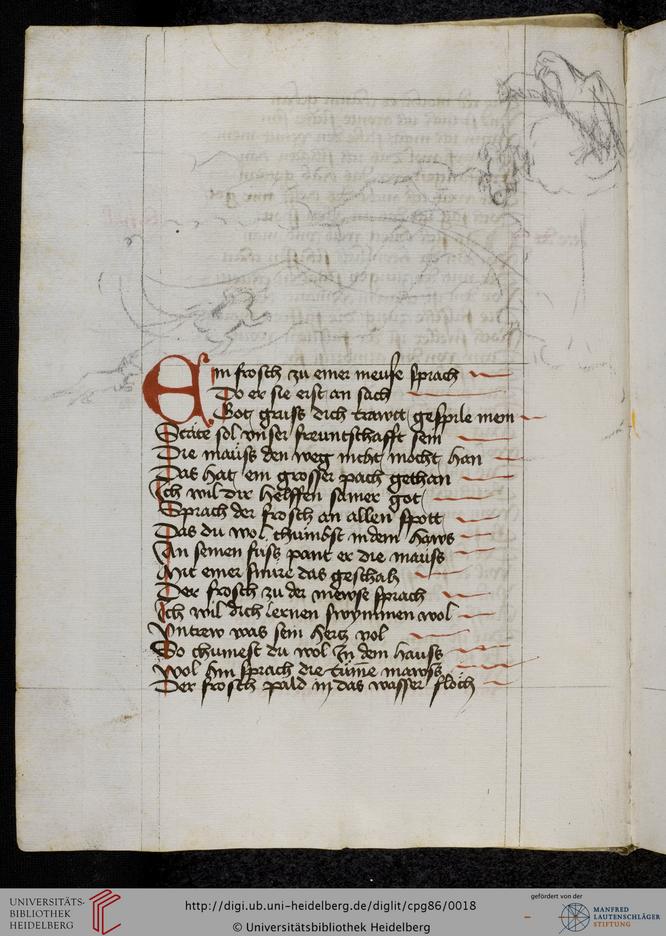 Ein frosch zu einer meuse sprach
Do er sie erst an sach
Got gruss dich trawtt gespile mein
Stäte sol vnser freuntschafft sein
Die mauss den weg nicht mocht han
Das hat ein grosser pach gethan
Ich wil dir helffen samer got
Sprach der frosch an allen spott
Das du wol chumbst in dem haws
An seinen fuss pant er die mauss
Mit einer snure das geschah
Der frosch zu der mewse sprach
Ich wil dich lernen swymmen wol
Vntrew was sein hertz vol
So chumest du wol In dem hauss
wol hin sprach die tūme mawss
Der frosch pald in das wasser floch
UNIVERSITÄTS-
BIBLIOTHEK
HEIDELBERG
http://digi.ub.uni-heidelberg.de/diglit/cpg86/0018
© Universitätsbibliothek Heidelberg
gefördert von der
MANFRED
LAUTENSCHLÄGER
STIFTUNG